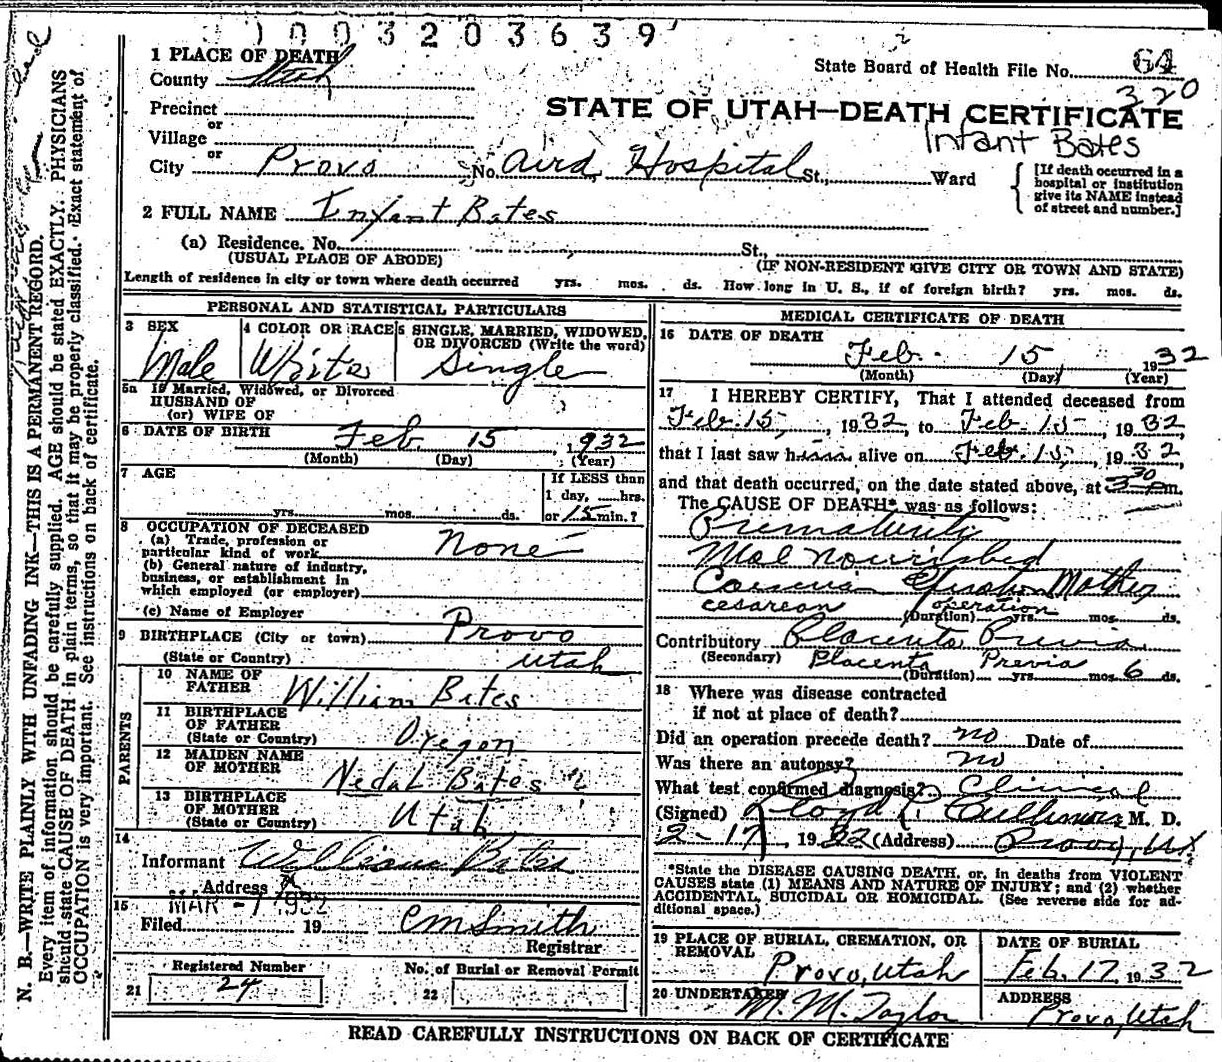 1 0 0 3 2 0 3 6 3 9
1 PLACE OF DEATH
County Utah
State Board of Health File No. 64
320
Precinct
or
STATE OF UTAH—DEATH CERTIFICATE
Village
or
Infant Bates
City Provo No. Aird Hospital St., Ward
[If death occurred in a hospital or institution give its NAME instead of street and number.]
2 FULL NAME Infant Bates
(a) Residence. No. St.,
(USUAL PLACE OF ABODE) (IF NON-RESIDENT GIVE CITY OR TOWN AND STATE)
Length of residence in city or town where death occurred yrs. mos. ds. How long in U. S., if of foreign birth? yrs. mos. ds.
PERSONAL AND STATISTICAL PARTICULARS
3 SEX 4 COLOR OR RACE 5 SINGLE, MARRIED, WIDOWED,
OR DIVORCED (Write the word)
Male White Single
5a If Married, Widowed, or Divorced
HUSBAND OF
(or) WIFE OF
6 DATE OF BIRTH Feb 15, 1932
(Month) (Day) (Year)
7 AGE If LESS than
1 day, hrs.
yrs. mos. ds. or 15 min.?
8 OCCUPATION OF DECEASED
(a) Trade, profession or
particular kind of work None
(b) General nature of industry,
business, or establishment in
which employed (or employer)
(c) Name of Employer
9 BIRTHPLACE (City or town) Provo
(State or Country) Utah
PARENTS
10 NAME OF
FATHER William Bates
11 BIRTHPLACE
OF FATHER
(State or Country) Oregon
12 MAIDEN NAME
OF MOTHER Nedal Bates
13 BIRTHPLACE
OF MOTHER
(State or Country) Utah
14
Informant William Bates
Address
15 MAR -1 1932
Filed 19 C M Smith
Registrar
Registered Number No. of Burial or Removal Permit
21 24 22
MEDICAL CERTIFICATE OF DEATH
16 DATE OF DEATH
Feb. 15 1932
(Month) (Day) (Year)
17 I HEREBY CERTIFY, That I attended deceased from
Feb. 15, 1932, to Feb. 15, 1932,
that I last saw him alive on Feb. 15, 1932,
and that death occurred, on the date stated above, at 3 30 m.
The CAUSE OF DEATH* was as follows:
Prematurity
Mal nourished
Mother
cesarean operation
(Duration) yrs. mos. ds.
Contributory Placenta Previa
(Secondary) Placenta Previa
(Duration) yrs. mos. 6 ds.
18 Where was disease contracted
if not at place of death?
Did an operation precede death? no Date of
Was there an autopsy? no
What test confirmed diagnosis? Clinical
(Signed) Lloyd L. Cullimore M. D.
2-17, 1932 (Address) Provo, Ut
*State the DISEASE CAUSING DEATH, or, in deaths from VIOLENT
CAUSES state (1) MEANS AND NATURE OF INJURY; and (2) whether
ACCIDENTAL, SUICIDAL OR HOMICIDAL. (See reverse side for ad-
ditional space.)
19 PLACE OF BURIAL, CREMATION, OR
REMOVAL
Provo, Utah
DATE OF BURIAL
Feb. 17, 1932
20 UNDERTAKER
M. M. Taylor
ADDRESS
Provo, Utah
READ CAREFULLY INSTRUCTIONS ON BACK OF CERTIFICATE
N. B.—WRITE PLAINLY WITH UNFADING INK—THIS IS A PERMANENT RECORD.
Every item of information should be carefully supplied. AGE should be stated EXACTLY. PHYSICIANS
should state CAUSE OF DEATH in plain terms, so that it may be properly classified. Exact statement of
OCCUPATION is very important. See instructions on back of certificate.